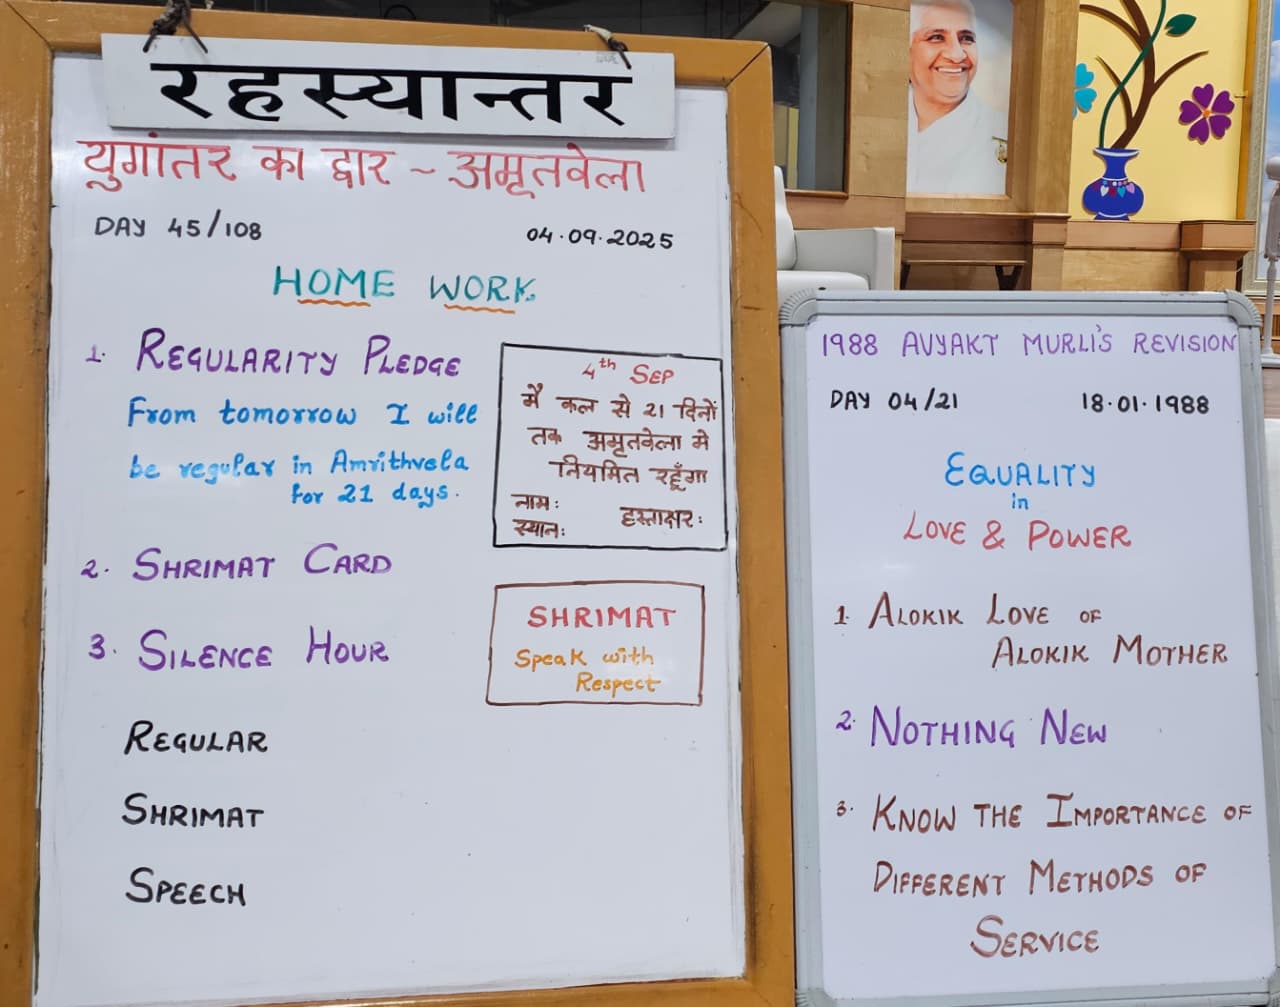 रहस्यान्तर
युगांतर का द्वार ~ अमृतवेला
DAY 45/108
04.09.2025
HOME WORK
1. REGULARITY PLEDGE
From tomorrow I will
be regular in Amrithvela
for 21 days.
4th SEP
मै कल से 21 दिनों
तक अमृतवेला मे
नियमित रहूँगा
नाम:
हस्ताक्षर:
स्थान:
2. SHRIMAT CARD
3. SILENCE HOUR
SHRIMAT
Speak with
Respect
REGULAR
SHRIMAT
SPEECH
1988 AVYAKT MURLI'S REVISION
DAY 04/21
18.01.1988
EQUALITY
in
LOVE & POWER
1. ALOKIK LOVE OF
ALOKIK MOTHER
2. NOTHING NEW
3. KNOW THE IMPORTANCE OF
DIFFERENT METHODS OF
SERVICE